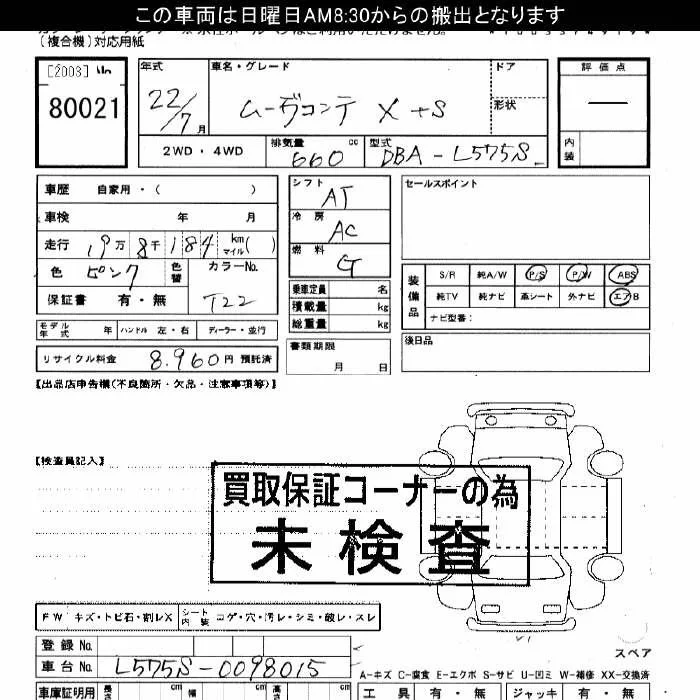 この車両は日曜日AM8:30からの搬出となります
(複合機)対応用紙
[2003]
80021
年式
22/7月
車名・グレード
ムーヴコンテ X +S
ドア
形状
評価点
—
内装
2WD・4WD
排気量
660 cc
型式
DBA-L575S
車歴 自家用・( )
車検 年 月
走行 19万8千184 km マイル( )
色 ピンク
色替
カラーNo.
T22
保証書 有・無
シフト
AT
冷房
AC
燃料
G
乗車定員 名
積載量 kg
総重量 kg
セールスポイント
装備品
S/R 純A/W P/S P/W ABS
純TV 純ナビ 革シート 外ナビ エアB
ナビ型番:
モデル年式 年 ハンドル 左・右 ディーラー・並行
リサイクル料金 8,960円 預託済
書類期限
月 日
後日品
【出品店申告欄(不良箇所・欠品・注意事項等)】
【検査員記入】
買取保証コーナーの為
未検査
FW キズ・トビ石・割レX
シート内装 コゲ・穴・汚レ・シミ・破レ・スレ
登録No.
車台No. L575S-0098015
スペア
A-キズ C-腐食 E-エクボ S-サビ U-凹ミ W-補修 XX-交換済
車庫証明用 長さ cm 幅 cm 高さ cm
工具 有・無 ジャッキ 有・無